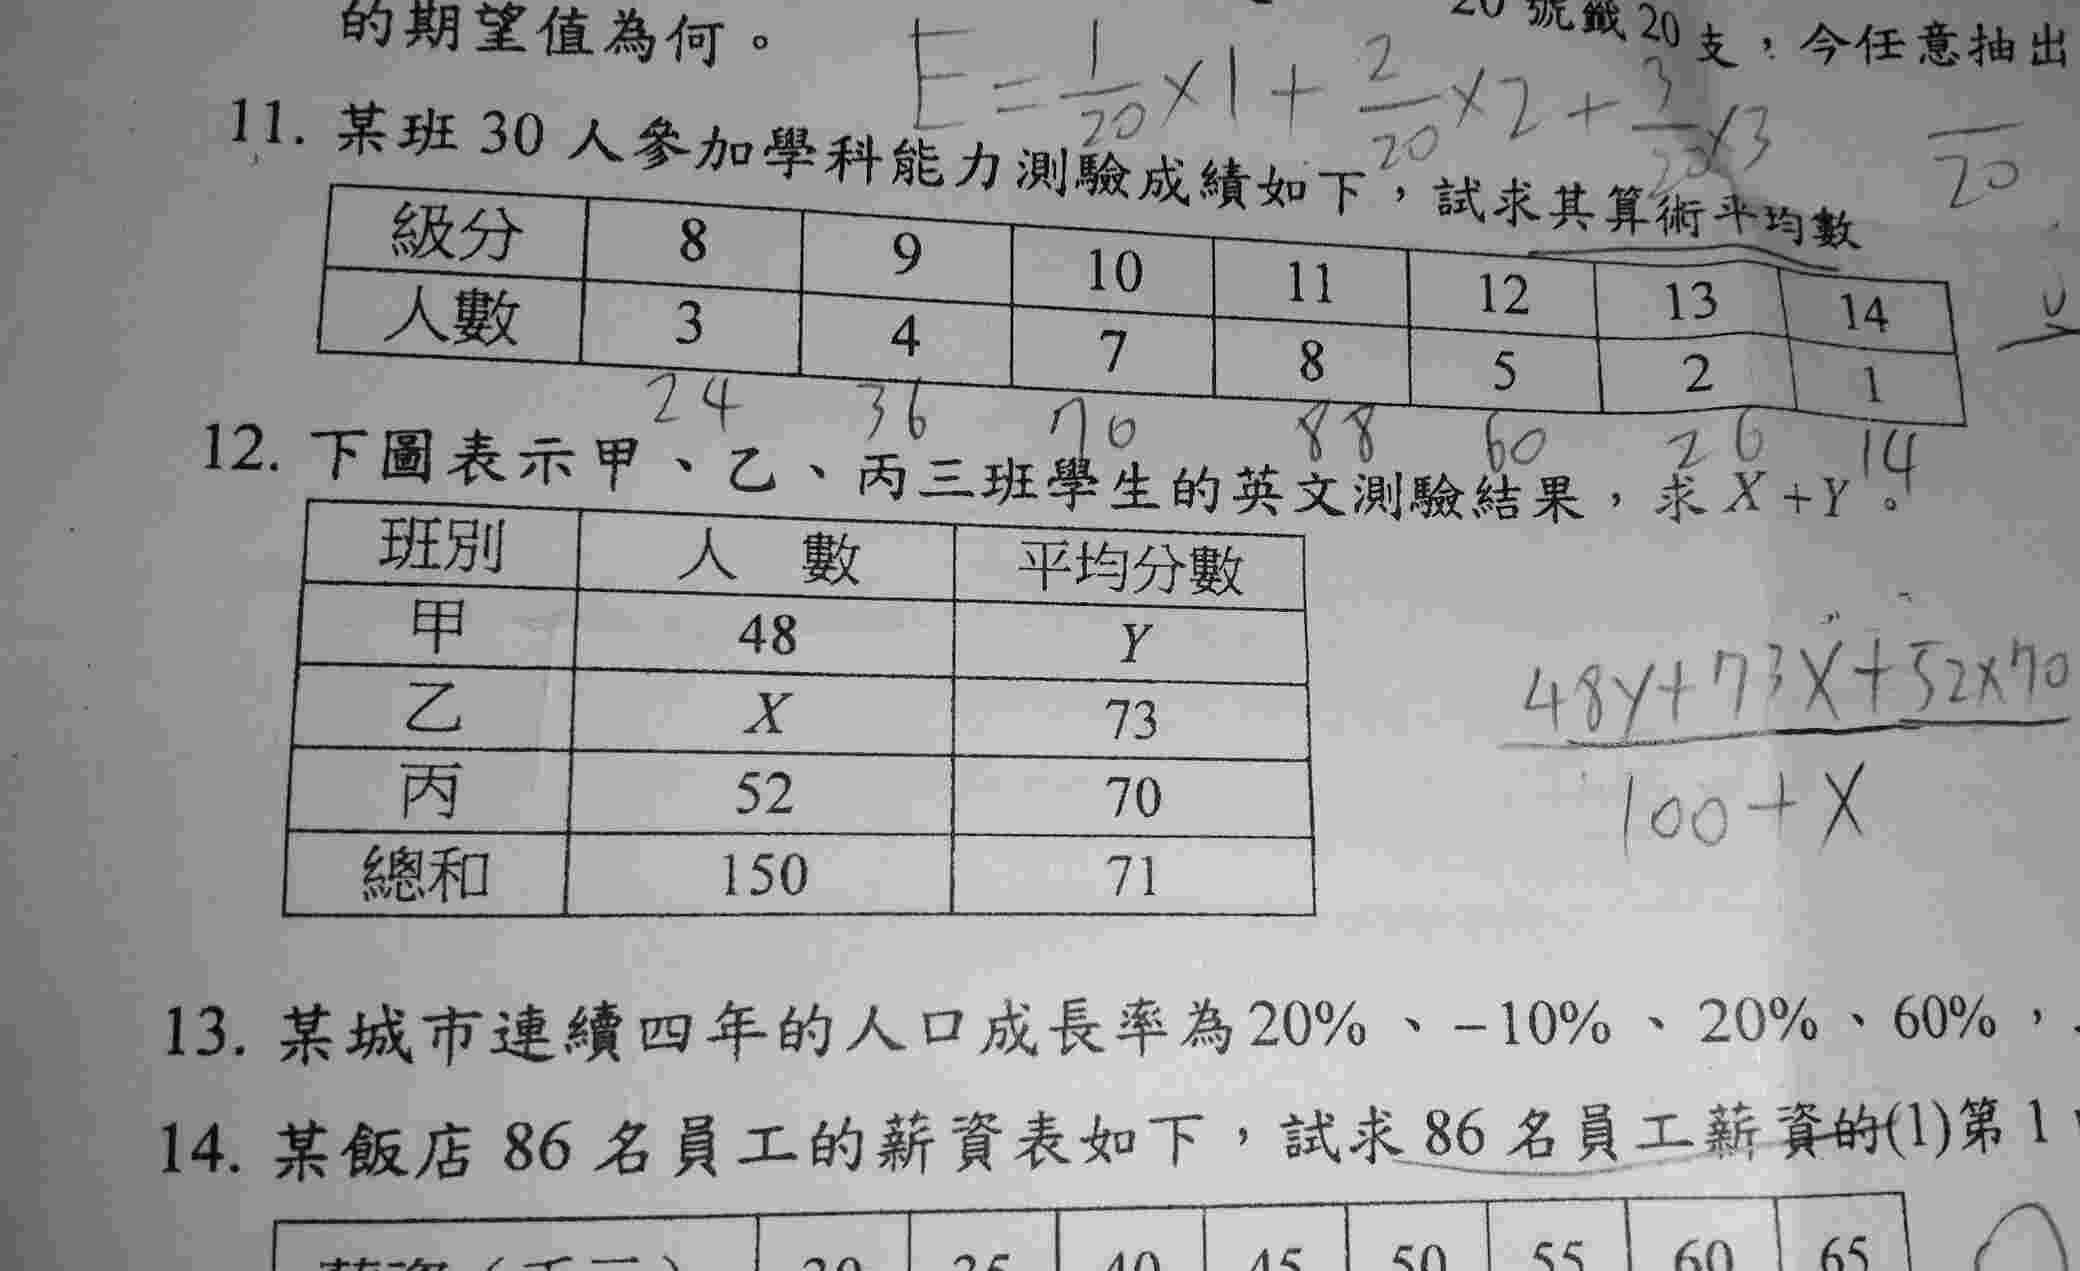 的期望值為何。
20 號籤 20 支，今任意抽出
E = 1/20 ×1 + 2/20 ×2 + 3/20 ×3
20
11. 某班 30 人參加學科能力測驗成績如下，試求其算術平均數
級分 8 9 10 11 12 13 14
人數 3 4 7 8 5 2 1
24 36 70 88 60 26 14
12. 下圖表示甲、乙、丙三班學生的英文測驗結果，求 X+Y。
班別 人 數 平均分數
甲 48 Y
乙 X 73
丙 52 70
總和 150 71
48Y+73X+52×70
100+X
13. 某城市連續四年的人口成長率為20%、-10%、20%、60%，
14. 某飯店 86 名員工的薪資表如下，試求 86 名員工薪資的(1)第 1
40 45 50 55 60 65